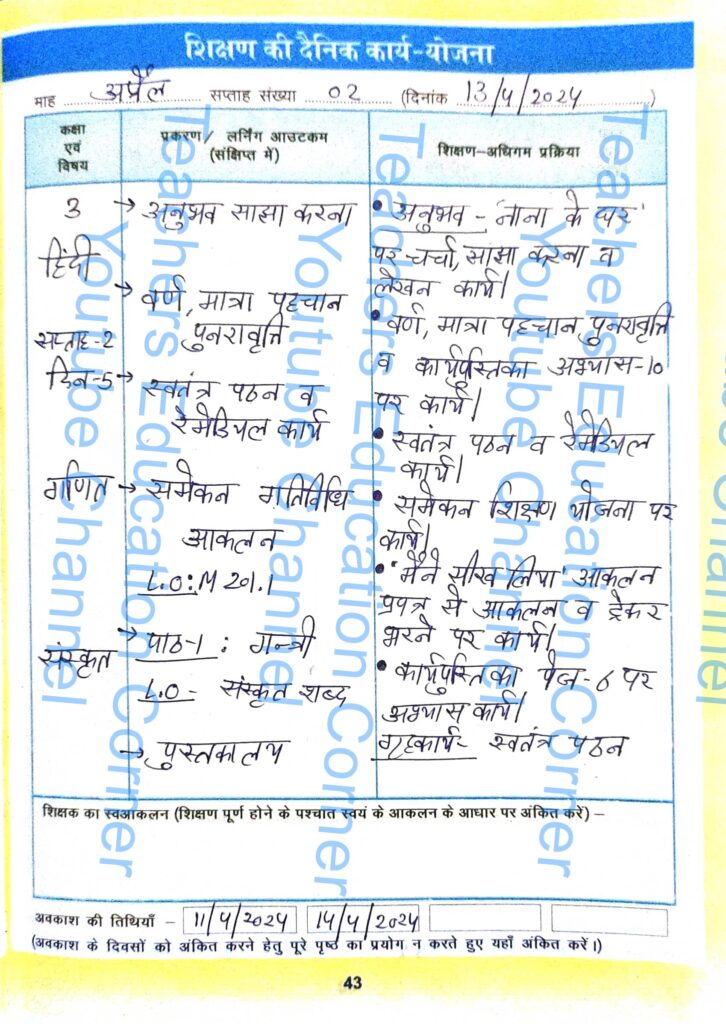 शिक्षण की दैनिक कार्य-योजना
माह अप्रैल सप्ताह संख्या 02 (दिनांक 13/4/2024)
कक्षा एवं विषय
प्रकरण/ लर्निंग आउटकम (संक्षिप्त में)
शिक्षण-अधिगम प्रक्रिया
3
हिंदी
सप्ताह-2
दिन-5
गणित
संस्कृत
→ अनुभव साझा करना
→ वर्ण, मात्रा पहचान
पुनरावृत्ति
→ स्वतंत्र पठन व
रेमेडियल कार्य
→ समेकन गतिविधि
आकलन
L.O:M 201.1
→ पाठ-1 : गन्त्री
L.O- संस्कृत शब्द
→ पुस्तकालय
• अनुभव - 'नाना के घर'
पर चर्चा, साझा करना व
लेखन कार्य।
• वर्ण, मात्रा पहचान पुनरावृत्ति
व कार्यपुस्तिका अभ्यास-10
पर कार्य।
• स्वतंत्र पठन व रेमेडियल
कार्य।
• समेकन शिक्षण योजना पर
कार्य।
• 'मैंने सीख लिया' आकलन
प्रपत्र से आकलन व ट्रेकर
भरने पर कार्य।
• कार्यपुस्तिका पेज-6 पर
अभ्यास कार्य।
गृहकार्य- स्वतंत्र पठन
शिक्षक का स्वआकलन (शिक्षण पूर्ण होने के पश्चात स्वयं के आकलन के आधार पर अंकित करें) –
अवकाश की तिथियाँ – 11/4/2024 14/4/2024
(अवकाश के दिवसों को अंकित करने हेतु पूरे पृष्ठ का प्रयोग न करते हुए यहाँ अंकित करें।)
43
Teachers Education Corner
Youtube Channel
Teachers Education Corner
Youtube Channel
Teachers Education Corner
Youtube Channel